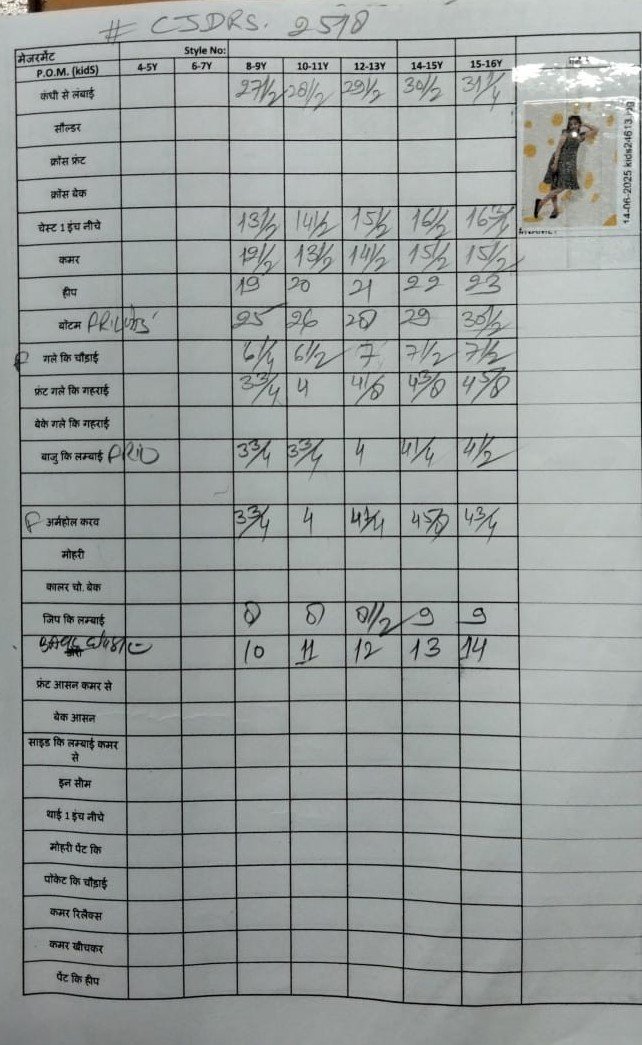 # CJDRS. 2518
मेजरमेंट Style No:
P.O.M. (kidS) 4-5Y 6-7Y 8-9Y 10-11Y 12-13Y 14-15Y 15-16Y
कंधी से लंबाई 27 1/2 28 1/2 29 1/2 30 1/2 31 1/4
सौल्डर
क्रोस फ्रंट
क्रोस बेक
चेस्ट 1 इंच नीचे 13 1/2 14 1/2 15 1/2 16 1/2 16 3/4
कमर 12 1/2 13 1/2 14 1/2 15 1/2 15 1/2
हीप 19 20 21 22 23
बोटम 25 26 28 29 30 1/2
P गले कि चौड़ाई 6 1/4 6 1/2 7 7 1/2 7 1/2
फ्रंट गले कि गहराई 3 3/4 4 4 1/8 4 3/8 4 5/8
बेके गले कि गहराई
बाजु कि लम्बाई 3 3/4 3 3/4 4 4 1/4 4 1/2
P अर्महोल करव 3 3/4 4 4 1/4 4 5/8 4 3/4
मोहरी
कालर चो. बेक
जिप कि लम्बाई 8 8 8 1/2 9 9
10 11 12 13 14
फ्रंट आसन कमर से
बेक आसन
साइड कि लम्बाई कमर
से
इन सीम
थाई 1 इंच नीचे
मोहरी पेंट कि
पोकेट कि चौड़ाई
कमर रिलैक्स
कमर खीचकर
पेंट कि हीप
14-06-2025 kids24613